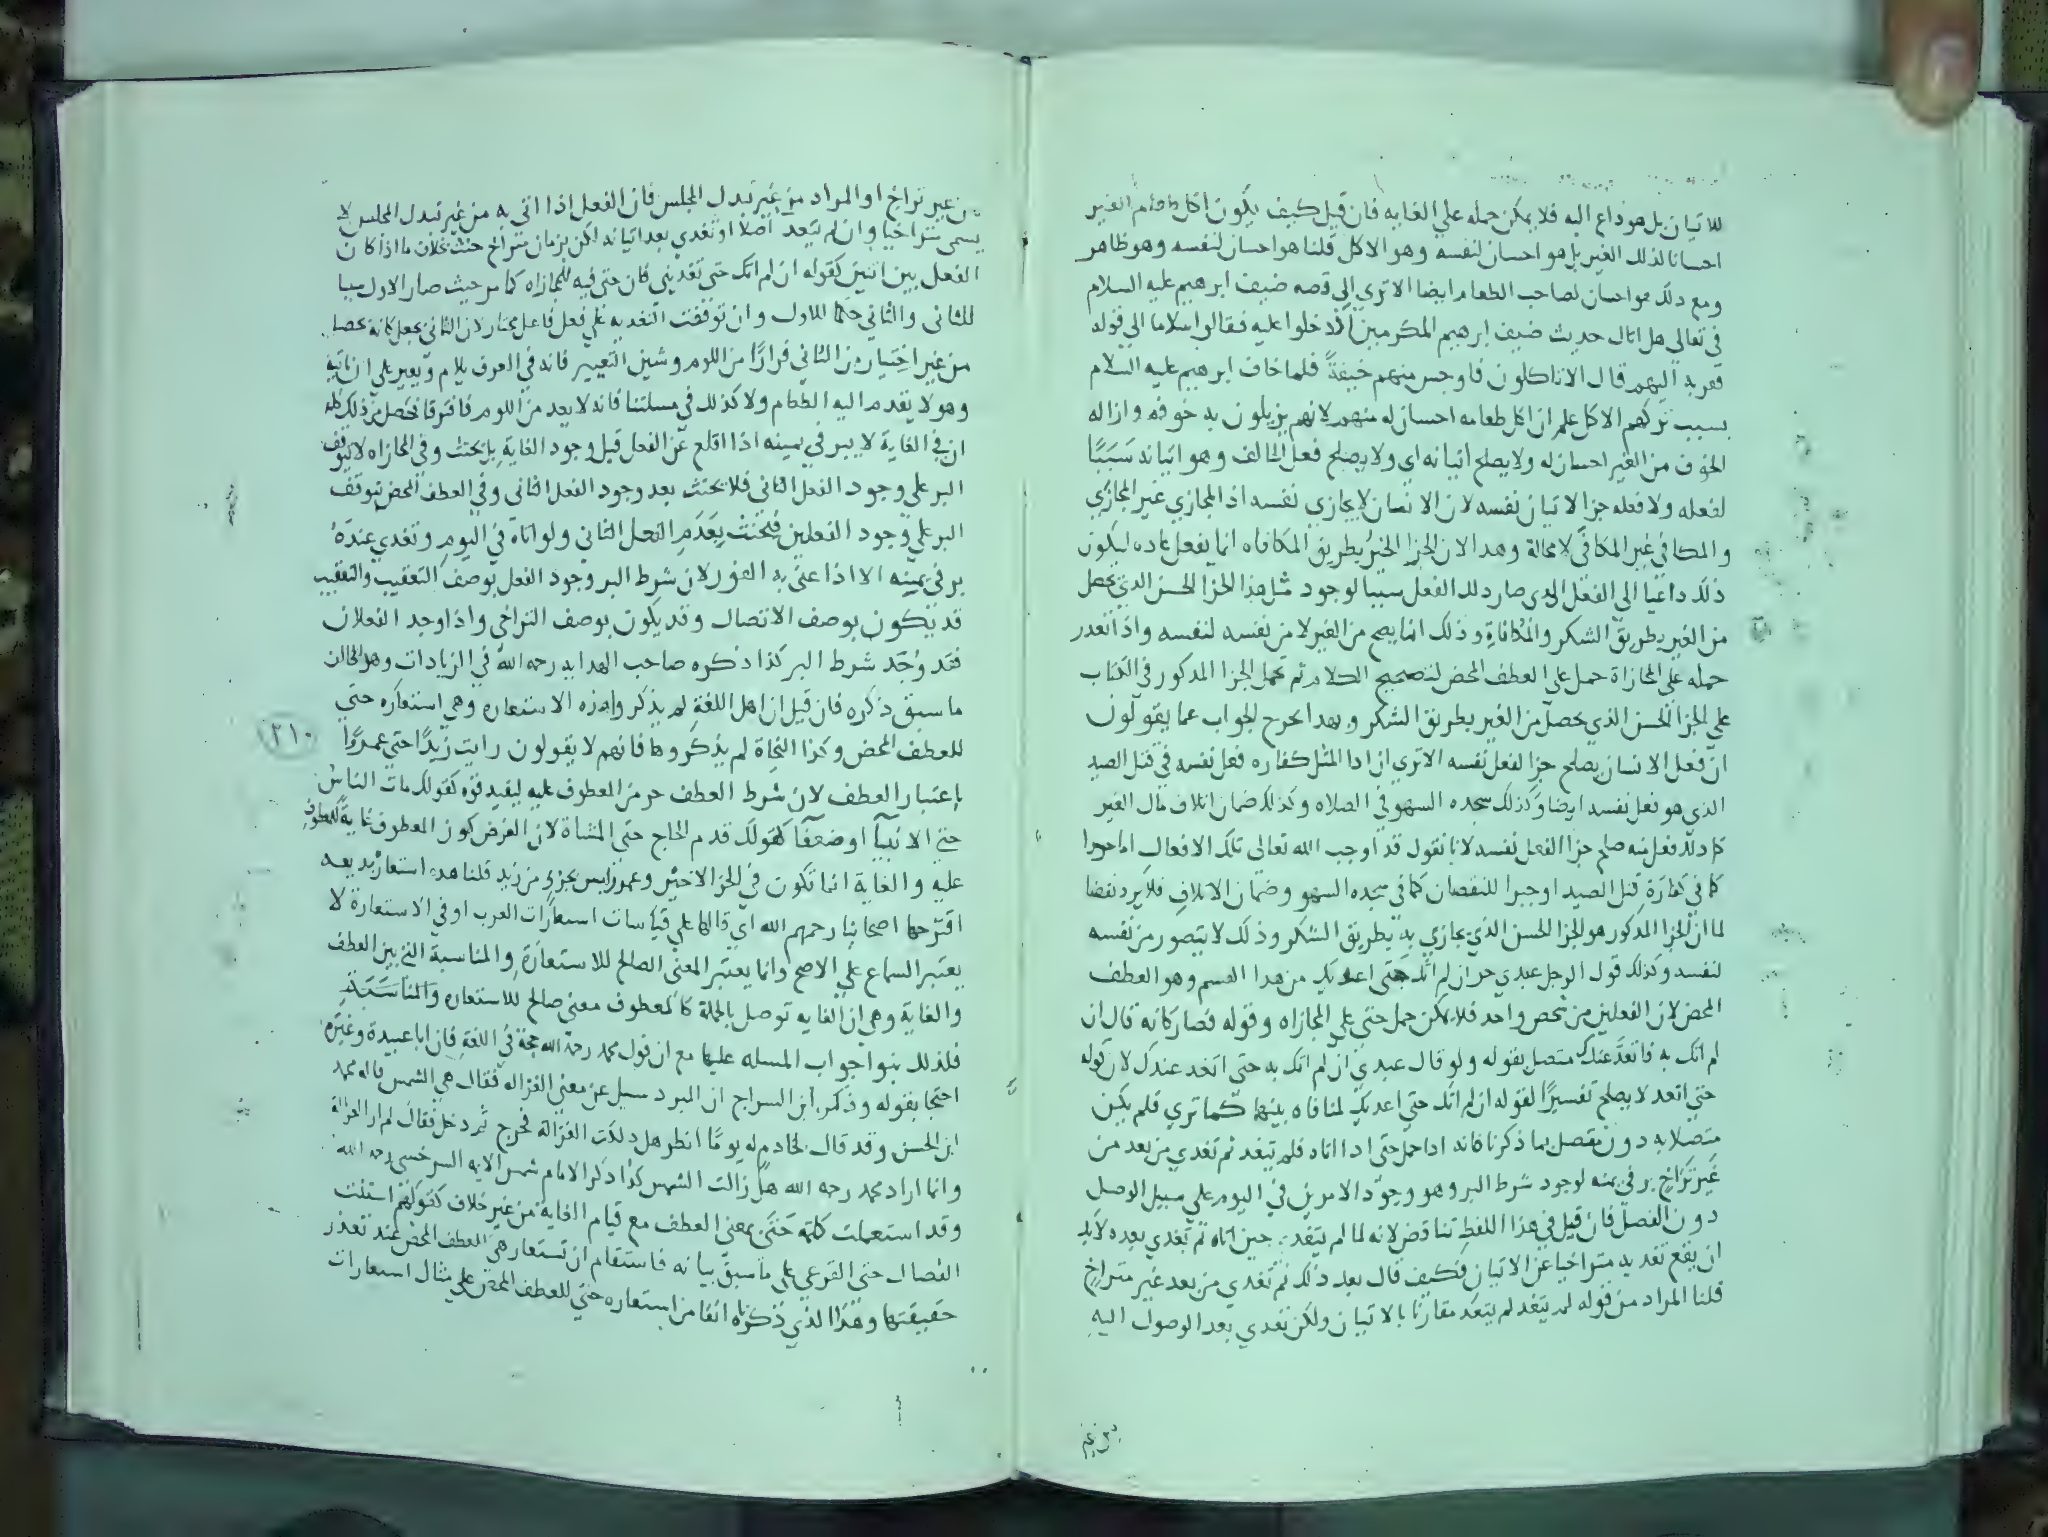 للاتيان بل هو داع اليه فلا يمكن حمله علي الغايه فان قيل كيف يكون اكل طعام الغير
احسانا لذلك الغير بل هو احسان لنفسه وهو الاكل قلنا هو احسان لنفسه وهو ظاهر
ومع ذلك هو احسان لصاحب الطعام ايضا الا تري الي قصه ضيف ابرهيم عليه السلام
في تعالي هل اتاك حديث ضيف ابرهيم المكرمين اذ دخلوا عليه فقالوا سلاما الي قوله
فقربه اليهم قال الا تاكلون فاوجس منهم خيفةً فلما خاف ابرهيم عليه السلام
بسبب تركهم الاكل علم ان اكل طعامه احسان له منهم لانهم يزيلون به خوفه وازاله
الخوف من الغير احسان له ولا يصلح اتيانه اي ولا يصلح فعل الحالف وهو اتيانه سَبَبًا
لفعله ولا فعله جزا لاتيان نفسه لان الانسان لا يجازي نفسه اذ المجازي غير المجازي
والمكافي غير المكافي لا محالة وهدا لان الجزا الخير بطريق المكافاه انما يفعل عاده ليكون
ذلك داعيا الي الفعل الذي صار ذلك الفعل سببا لوجود مثل هذا الجزا الحسن الذي يحصل
من الغير بطريق الشكر والمكافاة وذلك انما يصح من الغير لا من نفسه لنفسه واذا تعدر
حمله علي المجازاة حمل علي العطف المحض لتصحيح الكلام ثم نحمل الجزا المدكور في الكتاب
علي الجزا الحسن الذي يحصل من الغير بطريق الشكر وبهدا يخرج الجواب عما يقولون
ان فعل الانسان يصلح جزا لفعل نفسه الا تري ان ادا المثل كفاره فعل نفسه في قتل الصيد
الذي هو فعل نفسه ايضا وكذلك سجده السهو في الصلاه وكذلك ضمان اتلاف مال الغير
كل دلك فعل منه صلح جزا لفعل نفسه لانا نقول قد اوجب الله تعالي تلك الافعال اما جزا
كما في كفارة قتل الصيد او جبرا للنقصان كما في سجده السهو وضمان الاتلاف فلا يرد نقضا
لما ان الجزا المدكور هو الجزا الحسن الذي يجازي به بطريق الشكر وذلك لا يتصور من نفسه
لنفسه وكذلك قول الرجل عبدي حر ان لم اتك حتي اغديك من هدا القسم وهو العطف
المحض لان الفعلين من شخص واحد فلا يمكن حمل حتي علي المجازاه وقوله فصار كانه قال ان
لم اتك به فاتغد عندك متصل بقوله ولو قال عبدي ان لم اتك به حتي اتغد عندك لان قوله
حتي اتغد لا يصلح تفسيرًا لقوله ان لم اتك حتي اغديك لمنافاه بينهما كما تري فلم يكن
متصلا به دون مفصل بما ذكرنا فانه ادا حمل حتي ادا اتاه فلم يتغد ثم تغدي من بعد من
غير تَرَاخٍ بر في يمينه لوجود شرط البر وهو وجود الامرين في اليوم علي سبيل الوصل
دون الفصل فان قيل في هذا اللفظ تناقض لانه لما لم يتغد حين اتاه ثم تغدي بعده لابد
ان يقع تغديه متراخيا عن الاتيان فكيف قال بعد ذلك ثم تغدي من بعد غير متراخٍ
قلنا المراد من قوله لم يتغد لم يتغد مقارنًا بالاتيان ولكن تغدي بعد الوصول اليه
من غير تراخ او المراد من غير تبدل المجلس فان الفعل اذا اتي به من غير تبدل المجلس لا
يسمي متراخيا وان لم يتغد اصلا او تغدي بعد اتيانه لكن بزمان متراخ حنث بخلاف ما اذا كان
الفعل بين اثنين كقوله ان لم اتك حتي تغديني كان حتي فيه للمجازاه كما مر حيث صار الاول سببا
للثاني والثاني حكما للاول وان توقفت التغديه علي فعل فاعل مختار لان الثاني يجعل كانه يحصل
من غير اختيار من الثاني فرارًا من اللوم وشين التعيير فانه في العرف يلام ويعير علي ان ياتيه
وهو لا يقدم اليه الطعام ولا كذلك في مسلتنا فانه لا بعد من اللوم فافترقا فحصل من ذلك كله
ان في الغاية لا يبر في يمينه اذا اقلع عن الفعل قبل وجود الغاية بل يحنث وفي المجازاه لا يتوقف
البر علي وجود الفعل الثاني فلا يحنث بعد وجود الفعل الثاني وفي العطف المحض يتوقف
البر علي وجود الفعلين فيحنث بِعَدَمِ الفعل الثاني ولو اتاه في اليوم وتغدي عندَهُ
بر في يمينه الا اذا عني به الفور لان شرط البر وجود الفعل بوصف التعقيب والتعقيب
قد يكون بوصف الاتصال وقد يكون بوصف التراخي واذا وجد الفعلان
فقد وُجد شرط البر كذا ذكره صاحب الهدايه رحمه الله في الزيادات وهو الحال ان
ما سبق ذكره فان قيل ان اهل اللغة لم يذكروا هذه الاستعاره وهي استعاره حتي
للعطف المحض وكذا النحاة لم يذكروها فانهم لا يقولون رايت زيدًا حتي عمروًا
باعتبار العطف لان شرط العطف جزء من المعطوف عليه ليفيد قوه كقولك مات الناسُ
حتي الانبيا او ضعفا كقولك قدم الحاج حتي المشاة لان الغرض كون المعطوف غاية للمعطوف
عليه والغاية انما تكون في الجزا الاخير وعمرو ليس بجزء من زيد قلنا هده استعاره بديعه
اقترحها اصحابنا رحمهم الله اي قالها علي قياسات استعارات العرب او في الاستعارة لا
يعتبر السماع علي الاصح وانما يعتبر المعني الصالح للاستعارة والمناسبة التي بين العطف
والغاية وهي ان الغايه توصل بالجملة كالمعطوف معني صالح للاستعاره والمناسَبَةِ
فلذلك بنوا جواب المسله عليها مع ان قول محمد رحمه الله حجة في اللغة فان ابا عبيدة وغيره
احتجا بقوله وذكر ابن السراج ان المبرد سيل عن معني الغزاله فقال هي الشمس قاله محمد
ابن الحسن وقد قال لخادم له يومًا انظر هل دلكت الغزالة فخرج ثم دخل فقال لم ار الغزالة
وانما اراد محمد رحمه الله هل زالت الشمس كذا ذكر الامام شمس الايمه السرخسي رحمه الله
وقد استعملت كلمة حَتَى بمعني العطف مع قيام الغاية من غير خلاف كقولهم استنت
الفصال حتي القرعي علي ما سبق بيانه فاستقام ان تستعار هي العطف المحض عند تعذر
حقيقتها وهذا الذي ذكرناه انفا من استعاره حتي للعطف المحض علي مثال استعارات
٢١٠
من غير